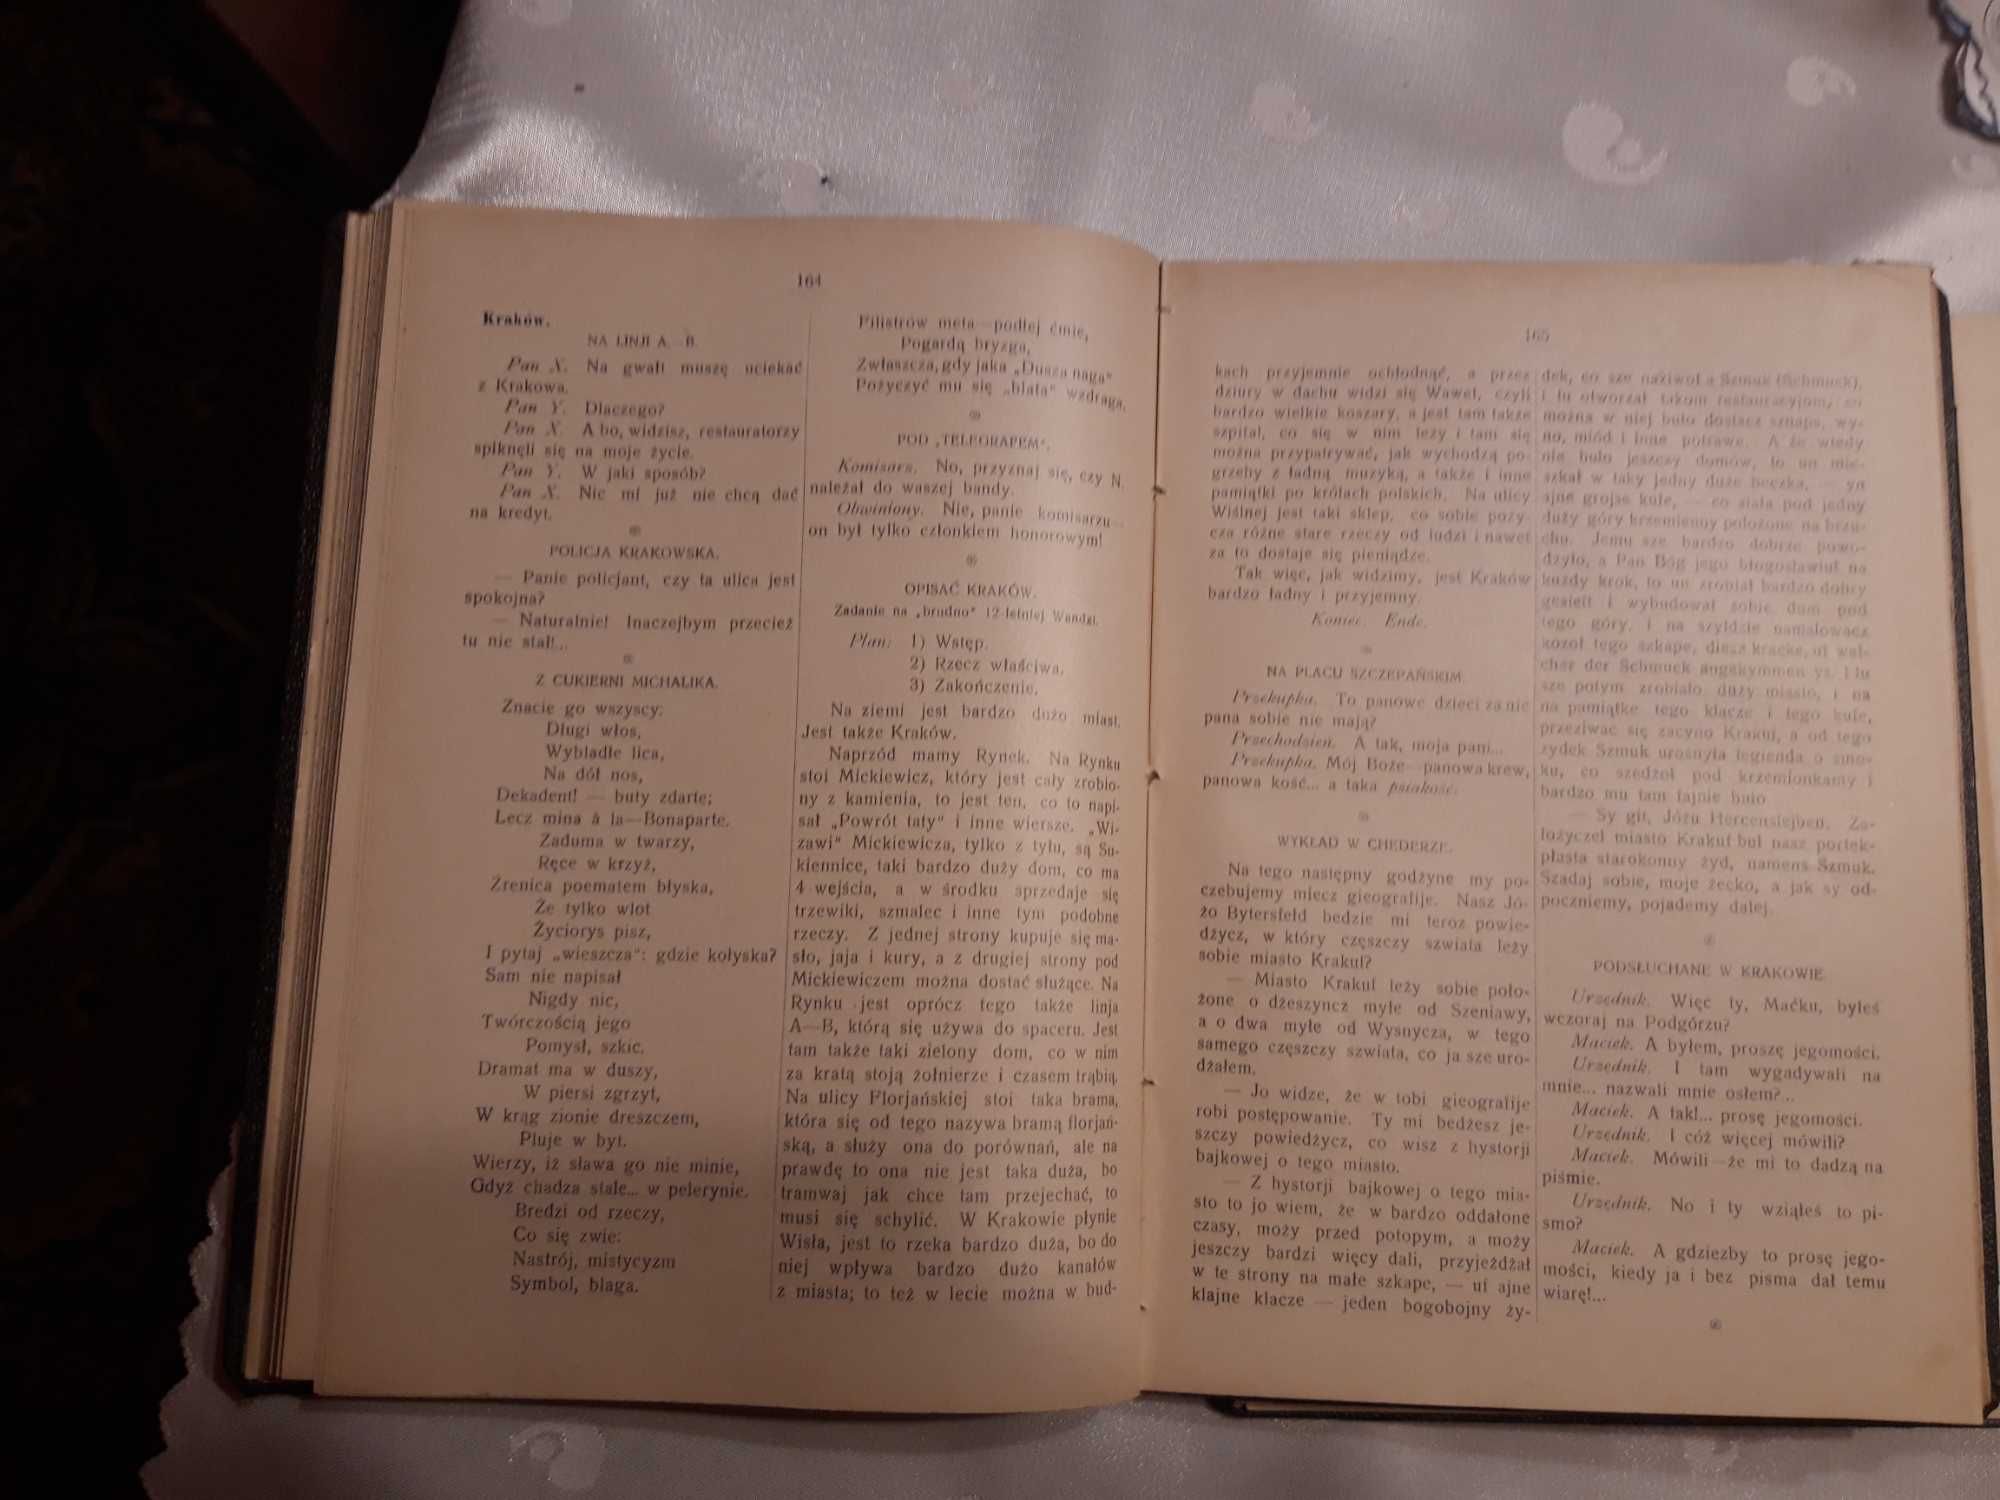 164
Kraków.
NA LINJI A—B.
Pan X. Na gwałt muszę uciekać
z Krakowa.
Pan Y. Dlaczego?
Pan X. A bo, widzisz, restauratorzy
spiknęli się na moje życie.
Pan Y. W jaki sposób?
Pan X. Nic mi już nie chcą dać
na kredyt.
POLICJA KRAKOWSKA.
— Panie policjant, czy ta ulica jest
spokojna?
— Naturalnie! Inaczejbym przecież
tu nie stał!...
Z CUKIERNI MICHALIKA.
Znacie go wszyscy:
Długi włos,
Wybladłe lica,
Na dół nos,
Dekadent! — buty zdarte;
Lecz mina à la—Bonaparte.
Zaduma w twarzy,
Ręce w krzyż,
Źrenica poematem błyska,
Że tylko wlot
Życiorys pisz,
I pytaj „wieszcza“: gdzie kołyska?
Sam nie napisał
Nigdy nic,
Twórczością jego
Pomysł, szkic.
Dramat ma w duszy,
W piersi zgrzyt,
W krąg zionie dreszczem,
Pluje w byt.
Wierzy, iż sława go nie minie,
Gdyż chadza stale... w pelerynie.
Bredzi od rzeczy,
Co się zwie:
Nastrój, mistycyzm
Symbol, blaga.
Filistrów meta—podłej ćmie,
Pogardą bryzga,
Zwłaszcza, gdy jaka „Dusza naga“
Pożyczyć mu się „blata“ wzdraga.
POD „TELEGRAFEM“.
Komisarz. No, przyznaj się, czy N.
należał do waszej bandy.
Obwiniony. Nie, panie komisarzu—
on był tylko członkiem honorowym!
OPISAĆ KRAKÓW.
Zadanie na „brudno“ 12-letniej Wandzi.
Plan: 1) Wstęp.
2) Rzecz właściwa.
3) Zakończenie.
Na ziemi jest bardzo dużo miast.
Jest także Kraków.
Naprzód mamy Rynek. Na Rynku
stoi Mickiewicz, który jest cały zrobio-
ny z kamienia, to jest ten, co to napi-
sał „Powrót taty“ i inne wiersze. „Wi-
zawi“ Mickiewicza, tylko z tyłu, są Su-
kiennice, taki bardzo duży dom, co ma
4 wejścia, a w środku sprzedaje się
trzewiki, szmalec i inne tym podobne
rzeczy. Z jednej strony kupuje się ma-
sło, jaja i kury, a z drugiej strony pod
Mickiewiczem można dostać służące. Na
Rynku jest oprócz tego także linja
A—B, którą się używa do spaceru. Jest
tam także taki zielony dom, co w nim
za kratą stoją żołnierze i czasem trąbią.
Na ulicy Florjańskiej stoi taka brama,
która się od tego nazywa bramą florjań-
ską, a służy ona do porównań, ale na
prawdę to ona nie jest taka duża, bo
tramwaj jak chce tam przejechać, to
musi się schylić. W Krakowie płynie
Wisła, jest to rzeka bardzo duża, bo do
niej wpływa bardzo dużo kanałów
z miasta; to też w lecie można w bud-
165
kach przyjemnie ochłodnąć, a przez
dziury w dachu widzi się Wawel, czyli
bardzo wielkie koszary, a jest tam także
szpital, co się w nim leży i tam się
można przypatrywać, jak wychodzą po-
grzeby z ładną muzyką, a także i inne
pamiątki po królach polskich. Na ulicy
Wiślnej jest taki sklep, co sobie poży-
cza różne stare rzeczy od ludzi i nawet
za to dostaje się pieniądze.
Tak więc, jak widzimy, jest Kraków
bardzo ładny i przyjemny.
Koniec. Ende.
NA PLACU SZCZEPAŃSKIM.
Przekupka. To panowe dzieci za nic
pana sobie nie mają?
Przechodzień. A tak, moja pani...
Przekupka. Mój Boże—panowa krew,
panowa kość... a taka psiakość.
WYKŁAD W CHEDERZE.
Na tego następny godżyne my po-
czebujemy miecz gieografije. Nasz Jó-
żo Bytersfeld bedzie mi teroz powie-
dżycz, w który częszczy szwiata leży
sobie miasto Krakuf?
— Miasto Krakuf leży sobie poło-
żone o dżeszyncz myle od Szeniawy,
a o dwa myle od Wysnycza, w tego
samego częszczy szwiata, co ja sze uro-
dżałem.
— Jo widze, że w tobi gieografije
robi postępowanie. Ty mi bedżesz je-
szczy powiedżycz, co wisz z hystorji
bajkowej o tego miasto.
— Z hystorji bajkowej o tego mia-
sto to jo wiem, że w bardzo oddałone
czasy, moży przed potopym, a moży
jeszczy bardzi więcy dali, przyjeżdżał
w te strony na małe szkape, — uf ajne
klajne klacze — jeden bogobojny ży-
dek, co sze naziwoł a Szmuk (Schmuck),
i tu otworzał takom restauracyjom, co
można w niej buło dostacz sznaps, wy-
no, miód i inne potrawe. A że wtedy
nie buło jeszczy domów, to un mie-
szkał w taky jedny duże beczka, — yn
ajne grojse kufe, — co stała pod jedny
duży góry krzemienny położone na brzu-
chu. Jemu sze bardzo dobrze powo-
dzyło, a Pan Bóg jego błogosławiuł na
każdy krok, to un zrobiał bardzo dobry
gesieft i wybudował sobie dom pod
tego góry, i na szyldzie namalowacz
kozoł tego szkape, diesz kracke, uf wel-
cher der Schmuck angekymmen ys. I tu
sze potym zrobiało duży miasto, i na
na pamiątke tego klacze i tego kufe,
przeziwac się zacyno Krakuf, a od tego
zydek Szmuk urosnyła legienda o smo-
ku, co szedzoł pod krzemionkamy i
bardzo mu tam fajnie buło
— Sy git, Józu Hercensłejben. Za-
łożyczel miasto Krakuf buł nasz portek-
płasta starokonny żyd, namens Szmuk.
Szadaj sobie, moje żecko, a jak sy od-
poczniemy, pojademy dalej.
PODSŁUCHANE W KRAKOWIE.
Urzędnik. Więc ty, Maćku, byłeś
wczoraj na Podgórzu?
Maciek. A byłem, proszę jegomości.
Urzędnik. I tam wygadywali na
mnie... nazwali mnie osłem?...
Maciek. A tak!... prosę jegomości.
Urzędnik. I cóż więcej mówili?
Maciek. Mówili—że mi to dadzą na
piśmie.
Urzędnik. No i ty wziąłeś to pi-
smo?
Maciek. A gdziezby to prosę jego-
mości, kiedy ja i bez pisma dał temu
wiarę!...